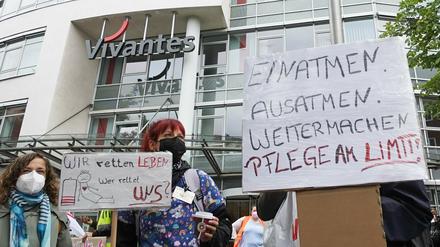 Vivantes
EINATMEN.
AUSATMEN.
WEITERMACHEN
PFLEGE AM LIMIT!
WIR retten LEBEN
Wer rettet
UNS?